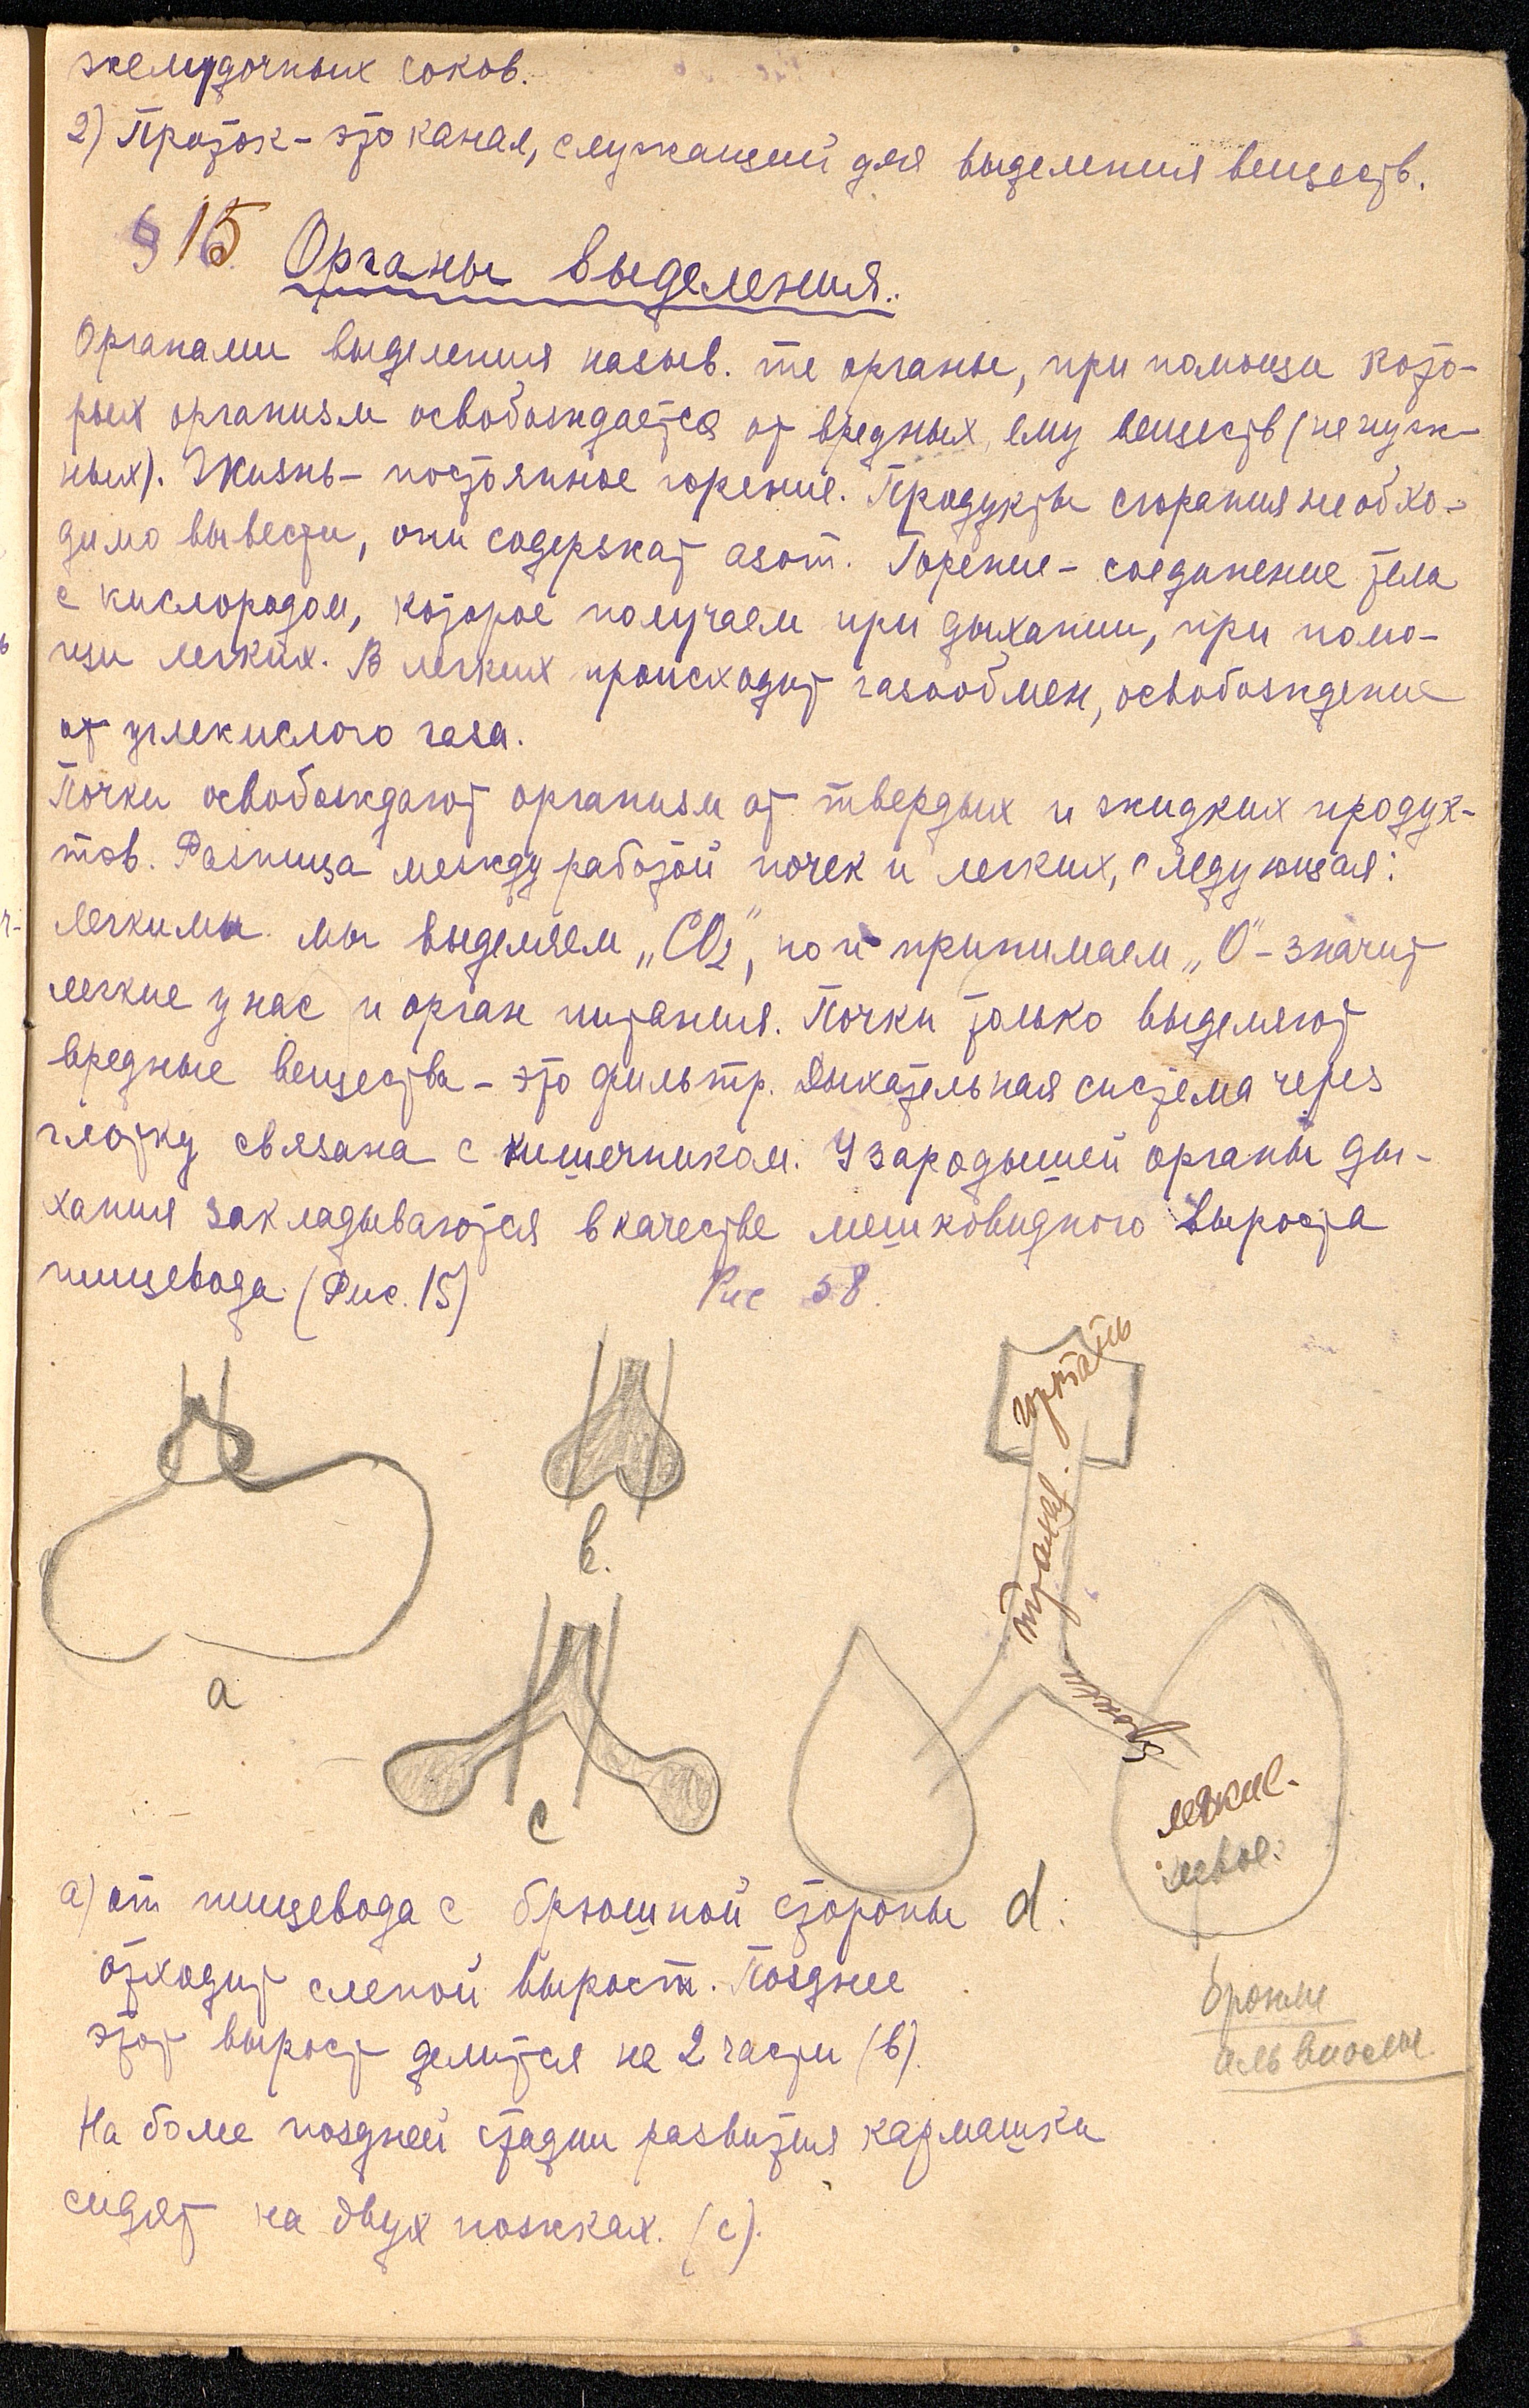 желудочных соков.
2) Проток - это канал, служащий для выделения веществ.
§ 15 Органы выделения.
Органами выделения назыв. те органы, при помощи кото-
рых организм освобождается от вредных ему веществ (не нуж-
ных). Жизнь - постоянное горение. Продукты сгорания необхо-
димо вывести, они содержат азот. Горение - соединение тела
с кислородом, которое получаем при дыхании, при помо-
щи легких. В легких происходит газообмен, освобождение
от углекислого газа.
Почки освобождают организм от твердых и жидких продук-
тов. Разница между работой почек и легких, следующая:
легкими мы выделяем „CO₂", но и принимаем „O" - значит
легкие у нас и орган питания. Почки только выделяют
вредные вещества - это фильтр. Дыхательная система через
глотку связана с кишечником. У зародышей органы ды-
хания закладываются в качестве мешковидного выроста
пищевода. (Рис. 15)
Рис 58.
гортань
трахея.
бронхи
легкие.
левое.
a
b.
c
d.
а) от пищевода с брюшной стороны
отходит слепой вырост. Позднее
этот вырост делится на 2 части (в).
На более поздней стадии развития кармашки
сидят на двух ножках. (с).
бронхи
альвиолы.